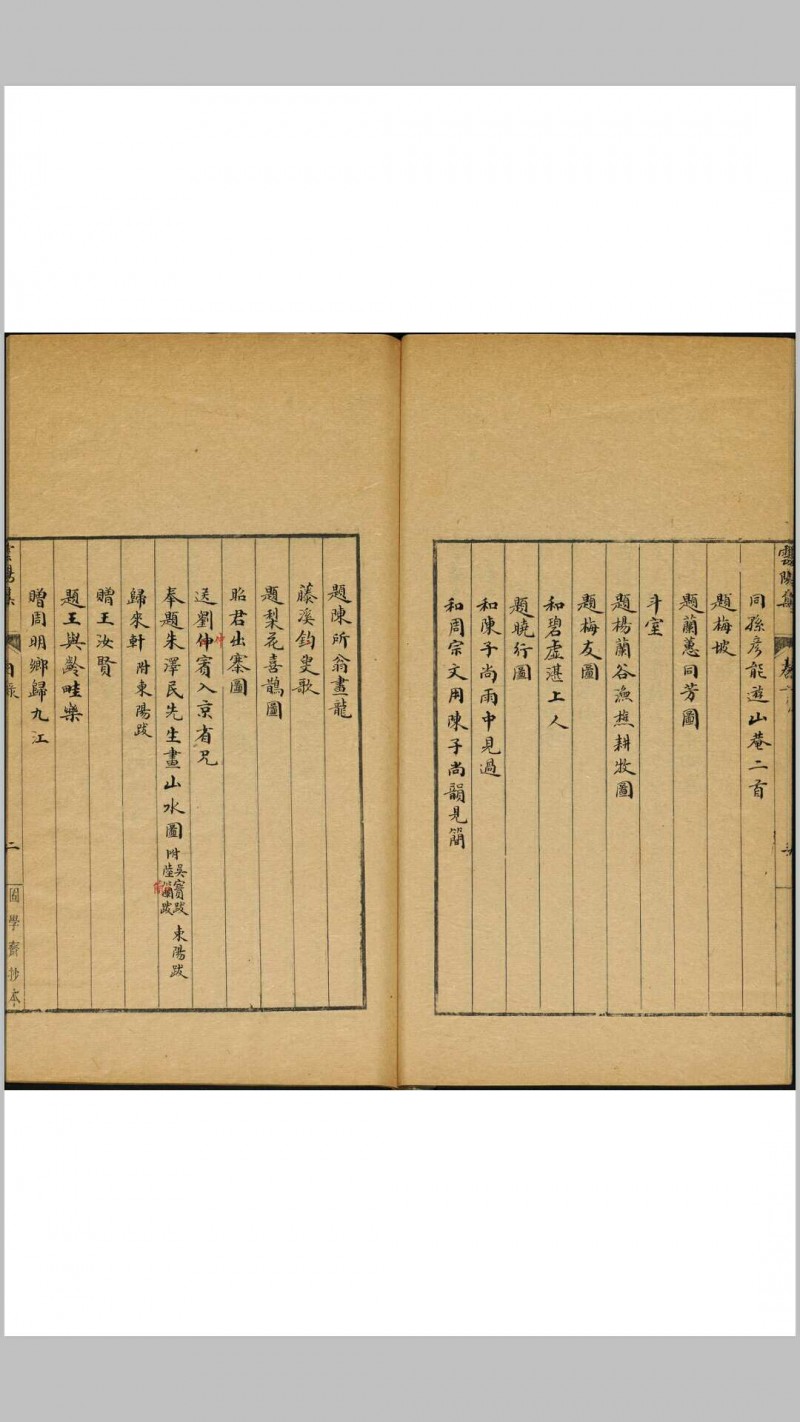 雲陽集
卷
同孫彥能遊山菴二首
題梅坡
題蘭蕙同芳圖
斗室
題楊蘭谷漁樵耕牧圖
題梅友圖
和碧虛湛上人
題曉行圖
和陳子尚雨中見過
和周宗文用陳子尚韻見簡
題陳所翁畫龍
藤溪釣叟歌
題梨花喜鵲圖
昭君出塞圖
送劉仲賓入京省兄
仲
奉題朱澤民先生畫山水圖 附 吳寬跋 陸簡跋 東陽跋
簡
歸來軒 附東陽跋
贈王汝賢
題王與齡畦樂
贈周明鄉歸九江
雲陽集
目錄
二
固學齋抄本